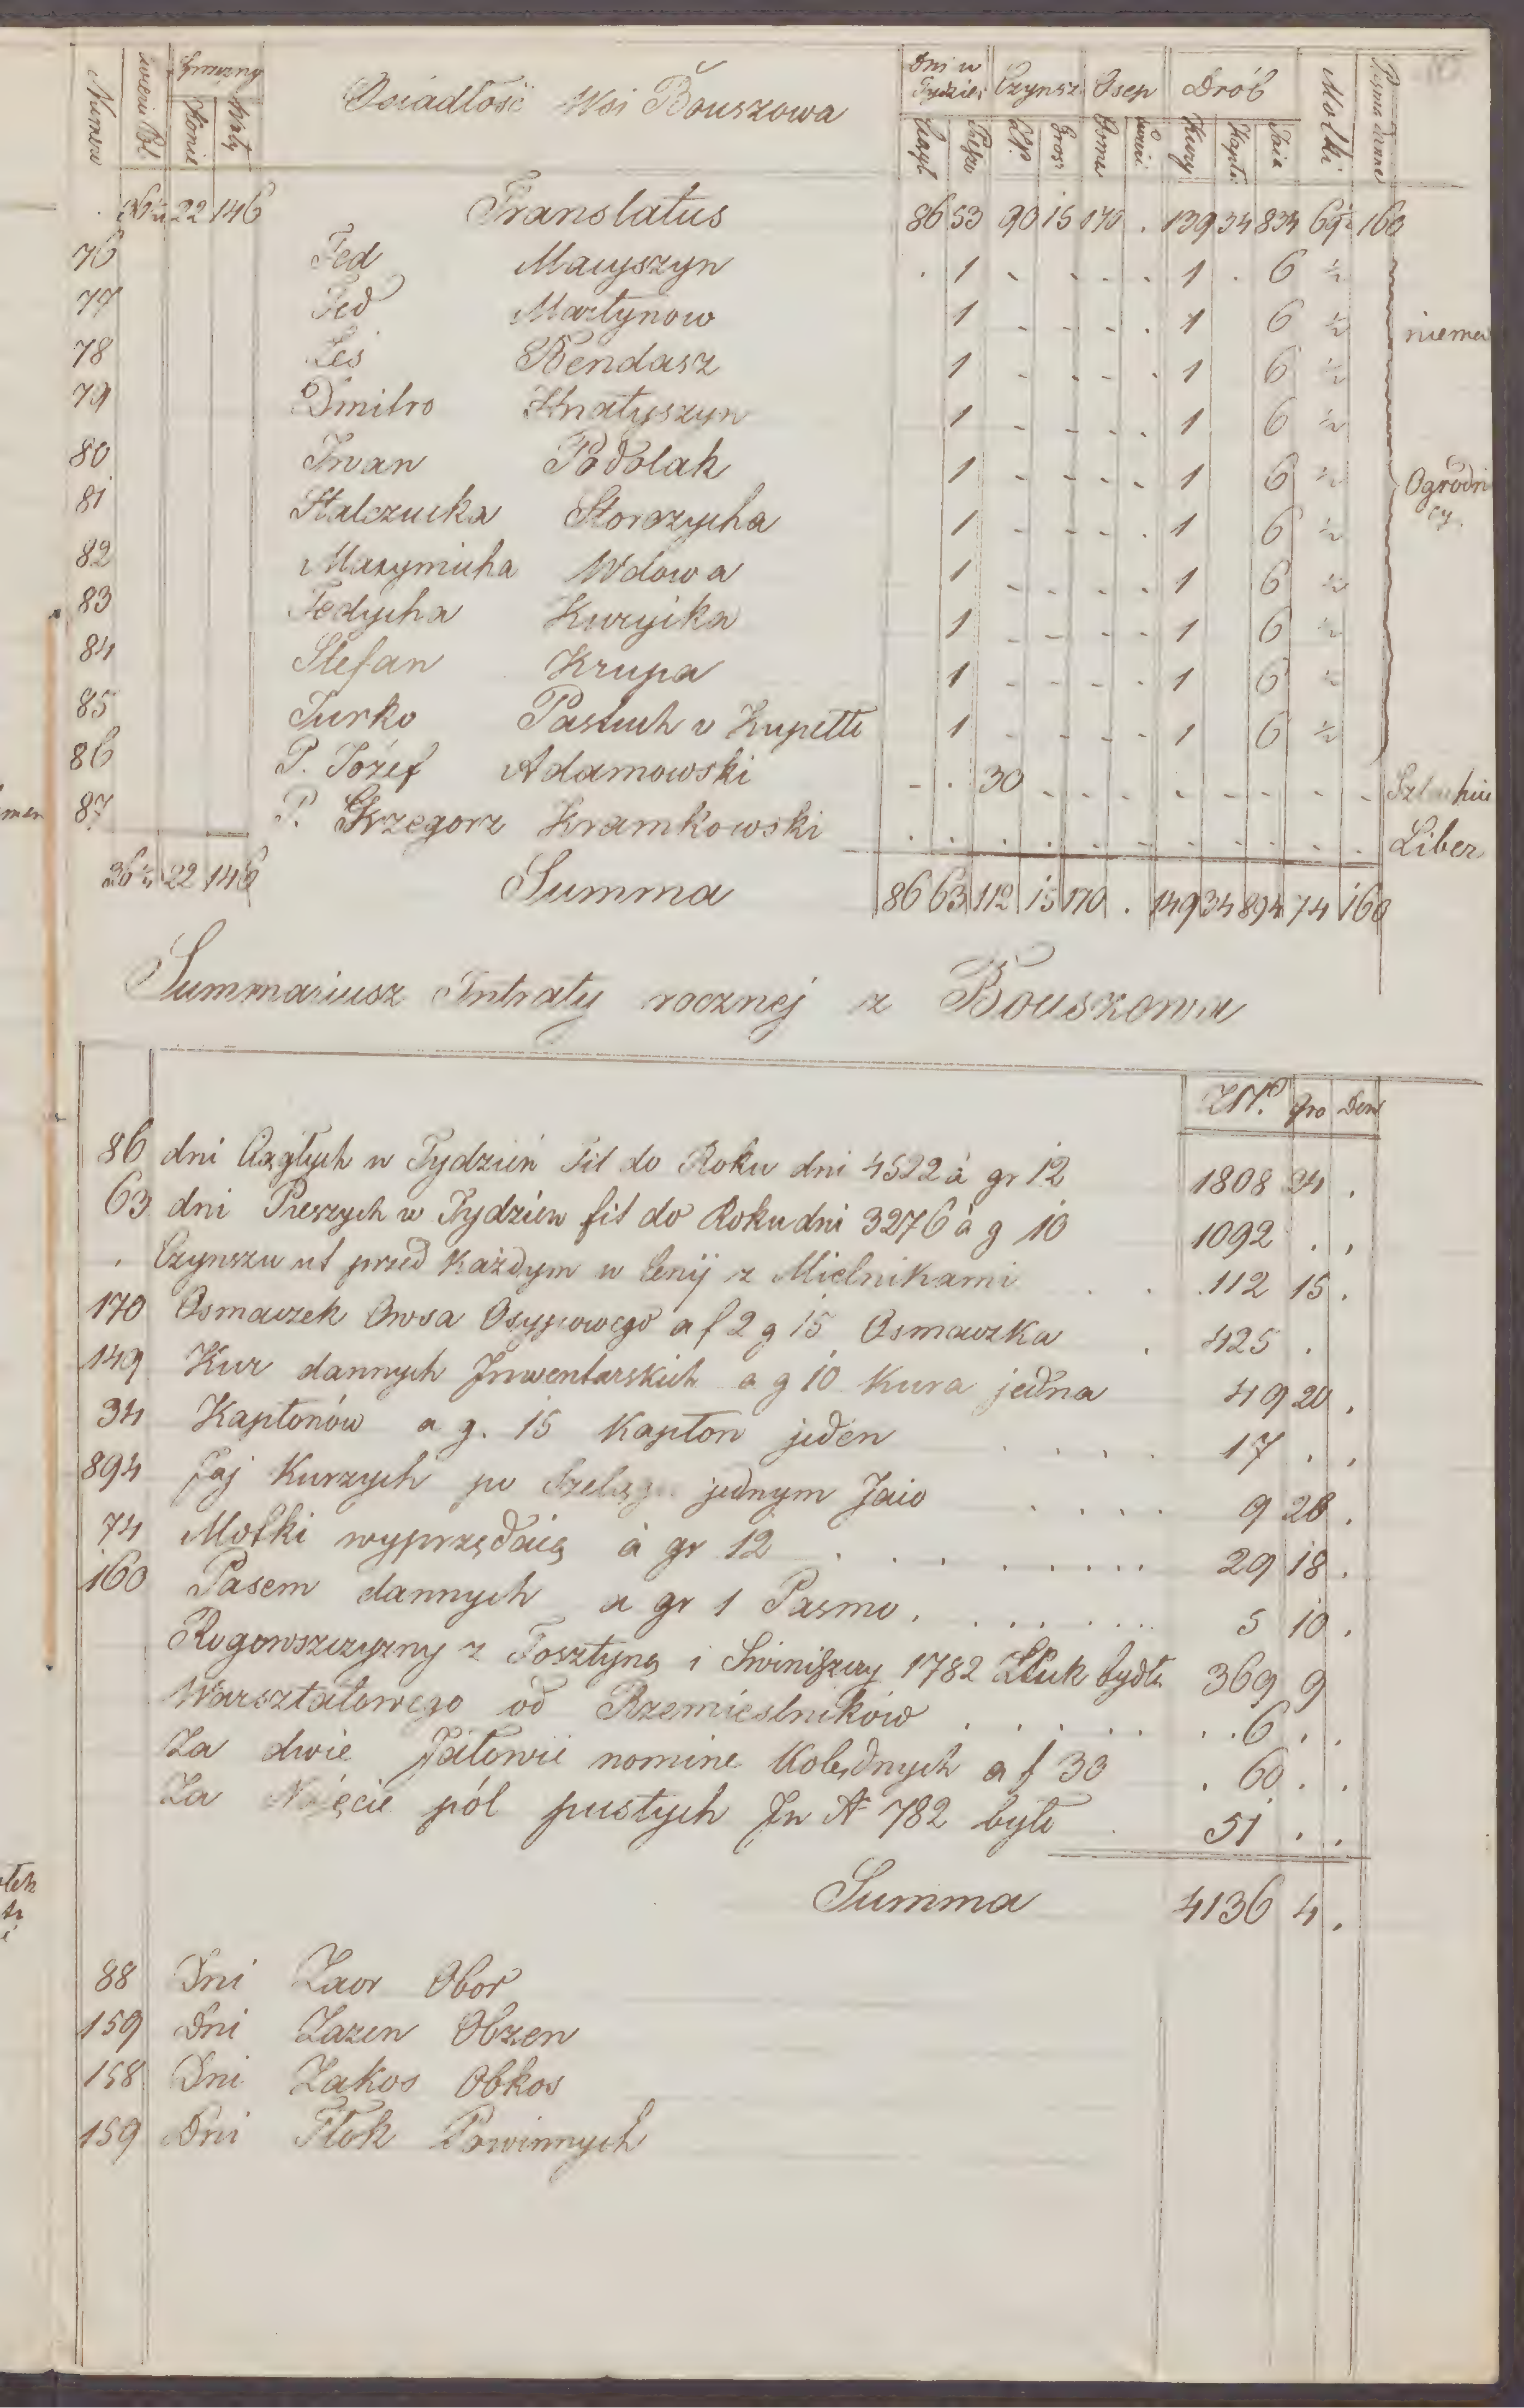 Numera Grunny Osiadłość Wsi Bouszowa Dni w Tydzień Czynsz Osep Drób Motki Pasma danne
Konie Woły Ciągł Piesze Złp Grosz Kury Kapło Jaia
22 146 Translatus 86 53 90 15 170 . 139 34 834 69½ 160
76 Fed Macyszyn . 1 - - - - 1 . 6 ½
77 Fed Martynow 1 - - - . 1 6 ½ niema
78 Leś Bendasz 1 - - - . 1 6 ½
79 Dmitro Hnatyszyn 1 - - - . 1 6 ½
80 Iwan Podolak 1 - - - - 1 6 ½ Ogrodni
81 Storozycha 1 - - - . 1 6 ½ cy.
82 Maxymicha Wdowa 1 - - - - 1 6 ½
83 Fedycha 1 - - - - 1 6 ½
84 Stefan Krupa 1 - - - - 1 6 ½
85 Jurko Pastuch v 1 - - - - 1 6 ½
86 P. Józef Adamowski - . 30 - - - - - - - - Szlachcic
87 P. Grzegorz Kramkowski . . . . . . . . . . . Liber
22 146 Summa 86 63 112 15 170 . 149 34 894 74 160
Summariusz Intraty rocznej z Bouszowa
ZłP. gro Den
86 dni Ciągłych w Tydzień Fit do Roku dni 4522 à gr 12 1808 24 .
63 dni Pieszych w Tydzień fit do Roku dni 3276 à g 10 1092 . .
. Czynszu ut przed Każdym w Cenij z Mielnikami . . .112 15 .
170 Osmaczek Owsa Osypowego a f 2 g 15 Osmaczka . 425 .
149 Kur dannych Inwentarskich a g 10 Kura jedna 49 20 .
34 Kapłonów a g. 15 Kapłon jeden . . . . 17 . .
894 Jaj Kurzych po Szelągu jednym Jaio . . . . . 9 28 .
74 Motki wyprzędzią à gr 12 . . . . . . . . . 29 18 .
160 Pasem dannych a gr 1 Pasmo . . . . . . . . 5 10 .
Rogowszczyzny z 1782 bydła 369 9
Warsztatowego od Rzemieslników . . . . . . . . 6 . .
Za dwie Jałowic nomine Kolędnych a f 30 . 60 . .
Za Najęcie pól pustych In A 782 było . 51 . .
Summa 4136 4 .
88 Dni Zaor Obor
159 Dni Zazen Obzen
158 Dni Zakos Obkos
159 Dni Tłok Powinnych